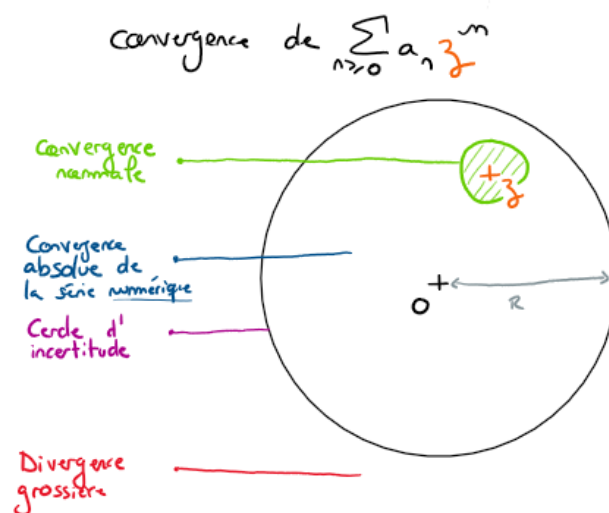 Convergence de ∑ n≥0 aₙ zⁿ
Convergence
normale
z
Convergence
absolue de
la série numérique
O
R
Cercle d'
incertitude
Divergence
grossière